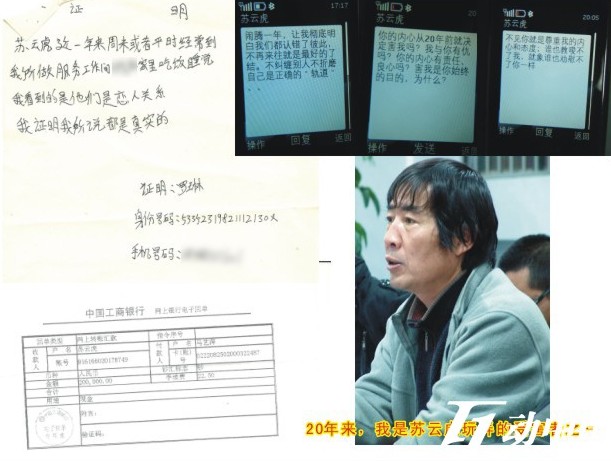 证 明
苏云虎这一年来周末或者平时经常到
我所做服务工作间 家里吃饭睡觉
我看到的是他们是恋人关系
我证明我所说都是真实的
证明:
身份号码:
手机号码:
17:17
苏云虎
闹腾一年,让我彻底
明白我们都认错了彼此,
不再来往就是最好的了
结。不纠缠别人不折磨
自己是正确的“轨道”
操作 回复 返回
20
苏云虎
你的内心从20年前就决
定害我吗?我与你有仇
吗?你的内心有责任、
良心吗?害我是你始终
的目的。为什么?
操作 发送
20:05
苏云虎
不见你就是尊重我的内
心和态度;谁也教唆不
了我,就象谁也劝慰不
了你一样
操作 回复 返回
中国工商银行 网上银行电子回单
回单类型 网上转账汇款 指令序号
收款人 户名 苏云虎 付款人 户名
账号 卡(账)号
币种 人民币 钞汇标志 钞
金额 200,000.00 手续费
合计
用途 现金
附言:
验证码:
20年来,我是苏云虎玩弄的